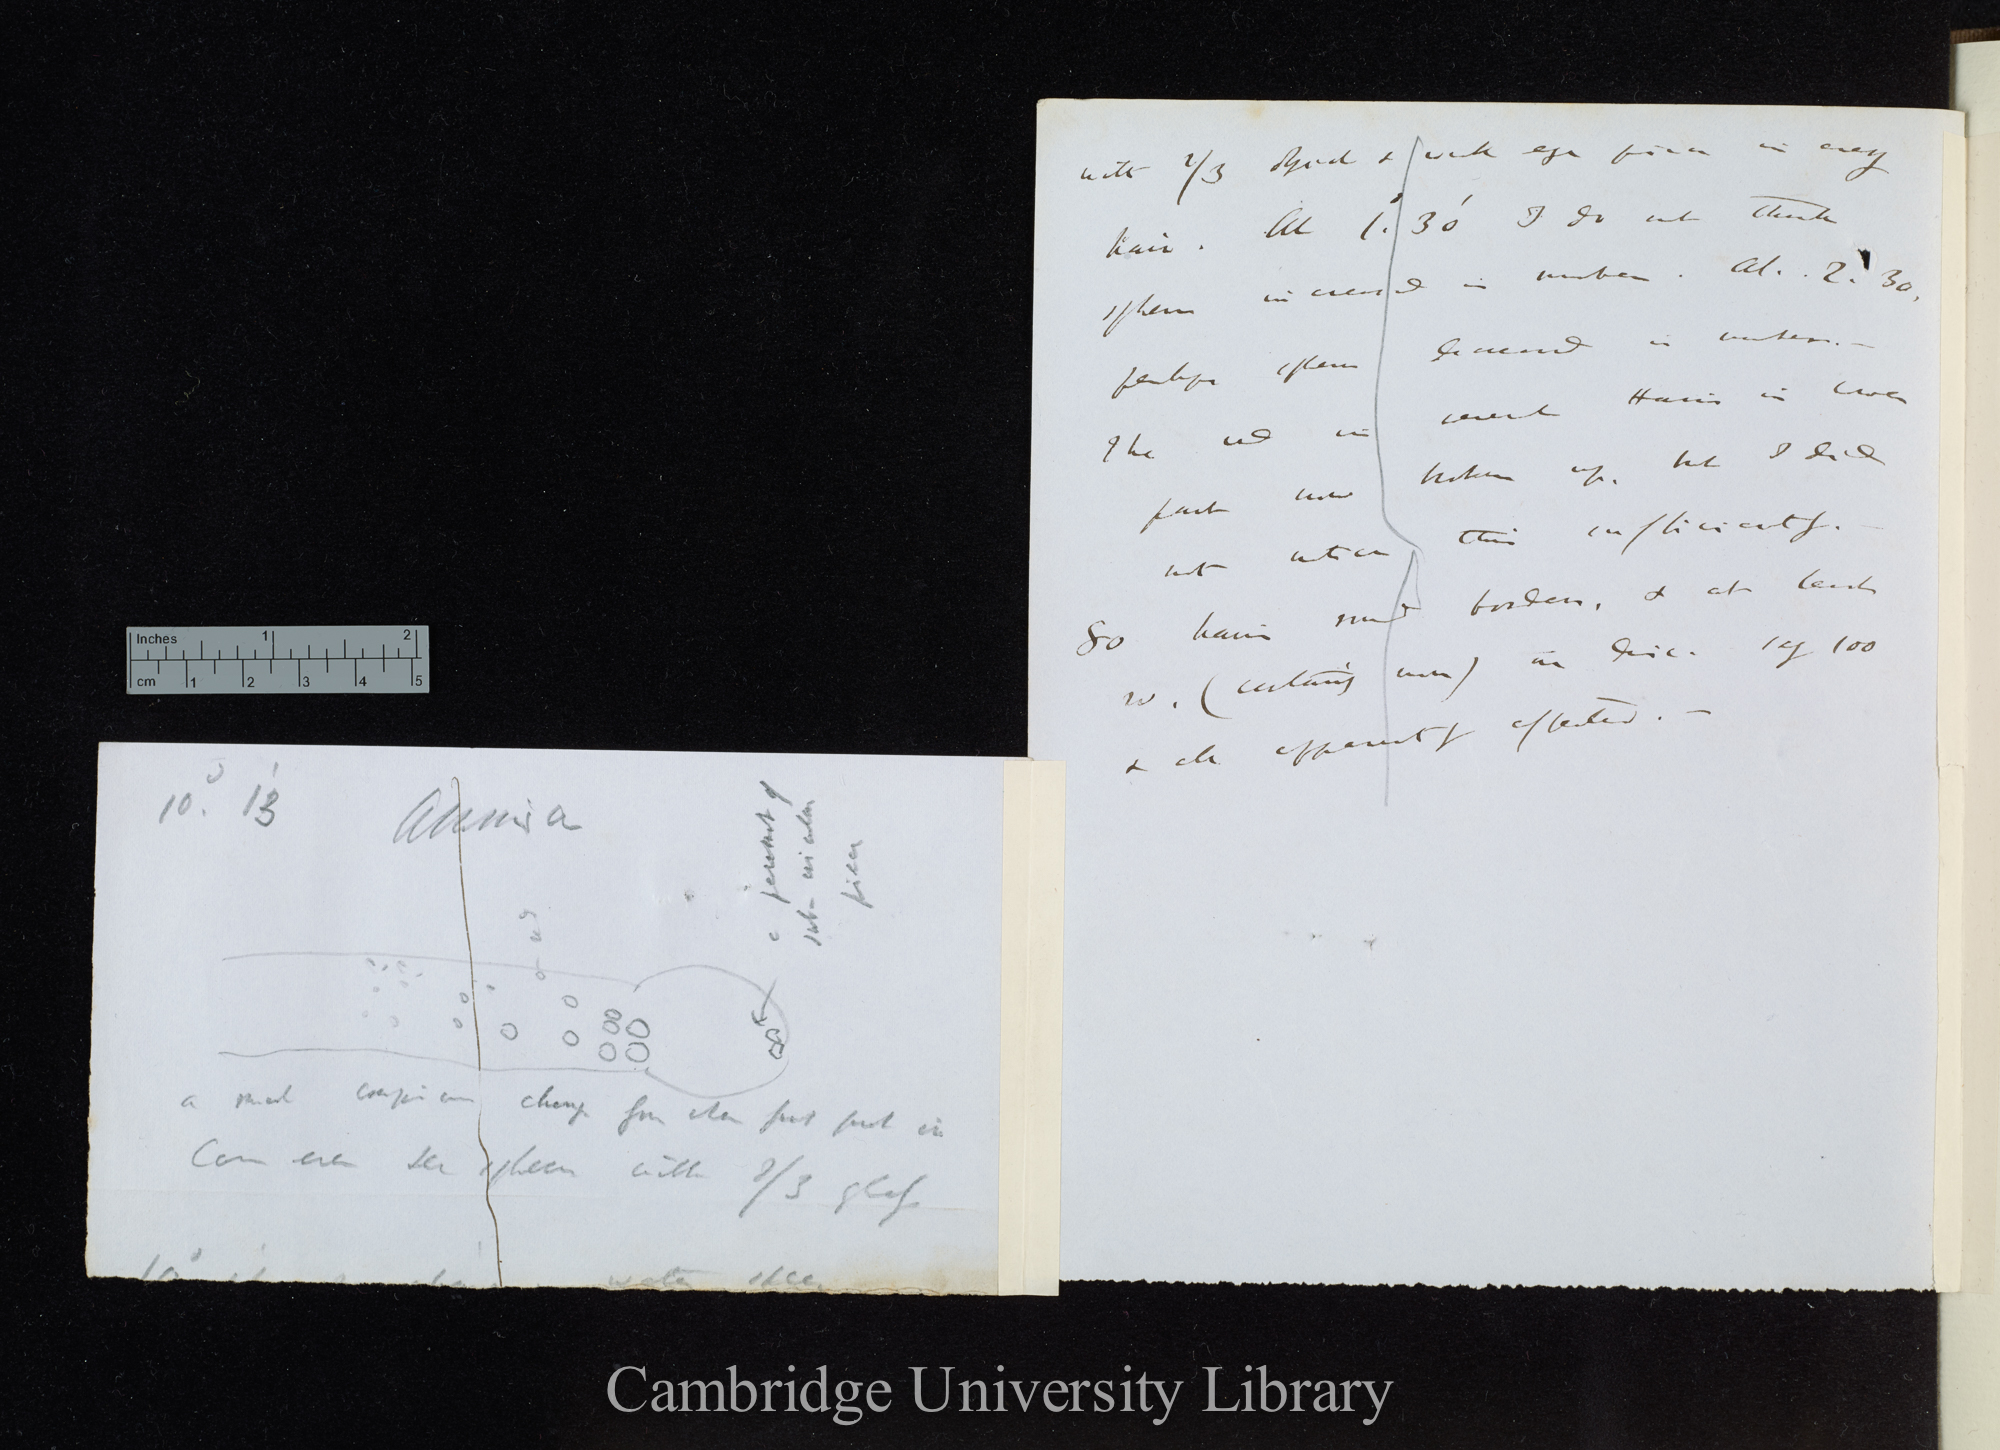 10° 13'
Ammonia
a part of
sub-
piece
red
a small conspicuous change from when first put in
Can even see spheres with 2/3 glass
10° water
with 2/3 object & weak eye piece in every
hair. At 1° 30' I do not think
spheres increased in number. At. 2° 30,
perhaps spheres decreased in number.—
The red in several Hairs in lower
part now broken up, but I did
not notice this sufficiently.—
80 hairs round borders, & at least
20. (certainly more) on disc. say 100
& all apparently affected.—
Inches 1 2
cm 1 2 3 4 5
Cambridge University Library